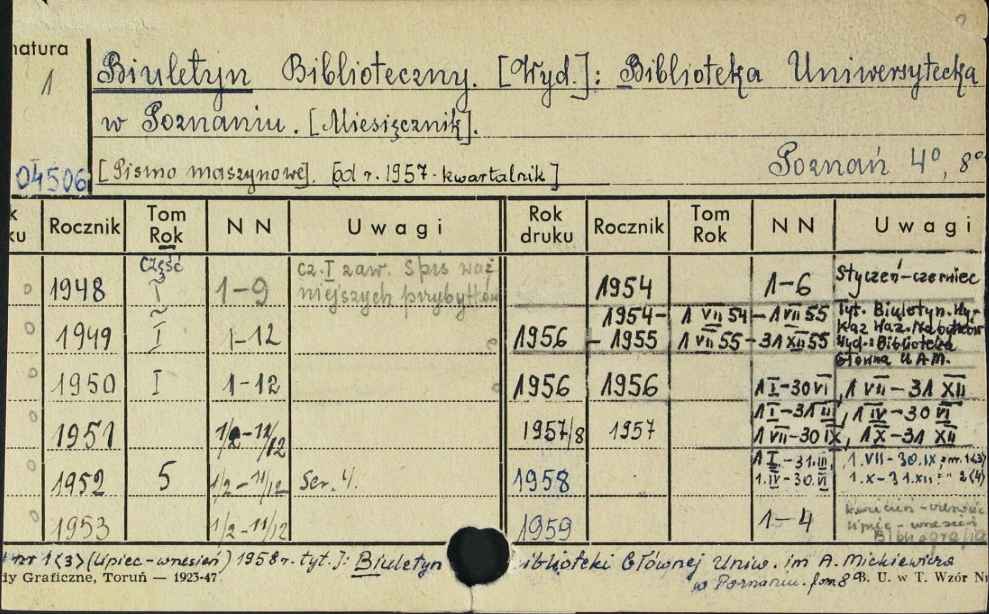 natura
1
Biuletyn Biblioteczny. [Wyd.]: Biblioteka Uniwersytecka
w Poznaniu. [Miesięcznik].
04506 [Pismo maszynowe]. [od r. 1957 - kwartalnik] Poznań 4°, 8°
Rocznik Tom Rok NN Uwagi Rok druku Rocznik Tom Rok NN Uwagi
1948 Część I 1-9 cz. I zaw. Spisważniejszych przybytków
1949 I 1-12
1950 I 1-12
1951 1/2-11/12
1952 5 1/2-11/12 Ser. 4.
1953 1/2-11/12
1954 1-6 Styczeń-czerwiec
1956 1954-1955 1 VII 54 - 1 VII 55
1 VII 55 - 31 XII 55
Tyt. Biuletyn. Wykaz Waż. Nabytków
Wyd.: Biblioteka
Główna U.A.M.
1956 1956 1 I-30 VI, 1 VII-31 XII
1957/8 1957 1 I-31 III, 1 IV-30 VI
1 VII-30 IX, 1 X-31 XII
1958 1 I.-31.III, 1.VII-30.IX, nr 1(3)
1.IV-30.VI 1.X-31.XII: " 2(4)
1959 1-4
lipiec-wrzesień
Bibliografia
nr 1(3) (Lipiec-wrzesień) 1958 r. tyt.]: Biuletyn Biblioteki Głównej Uniw. im A. Mickiewicza
w Poznaniu. form 8°
dy Graficzne, Toruń — 1923-47. B. U. w T. Wzór Nr